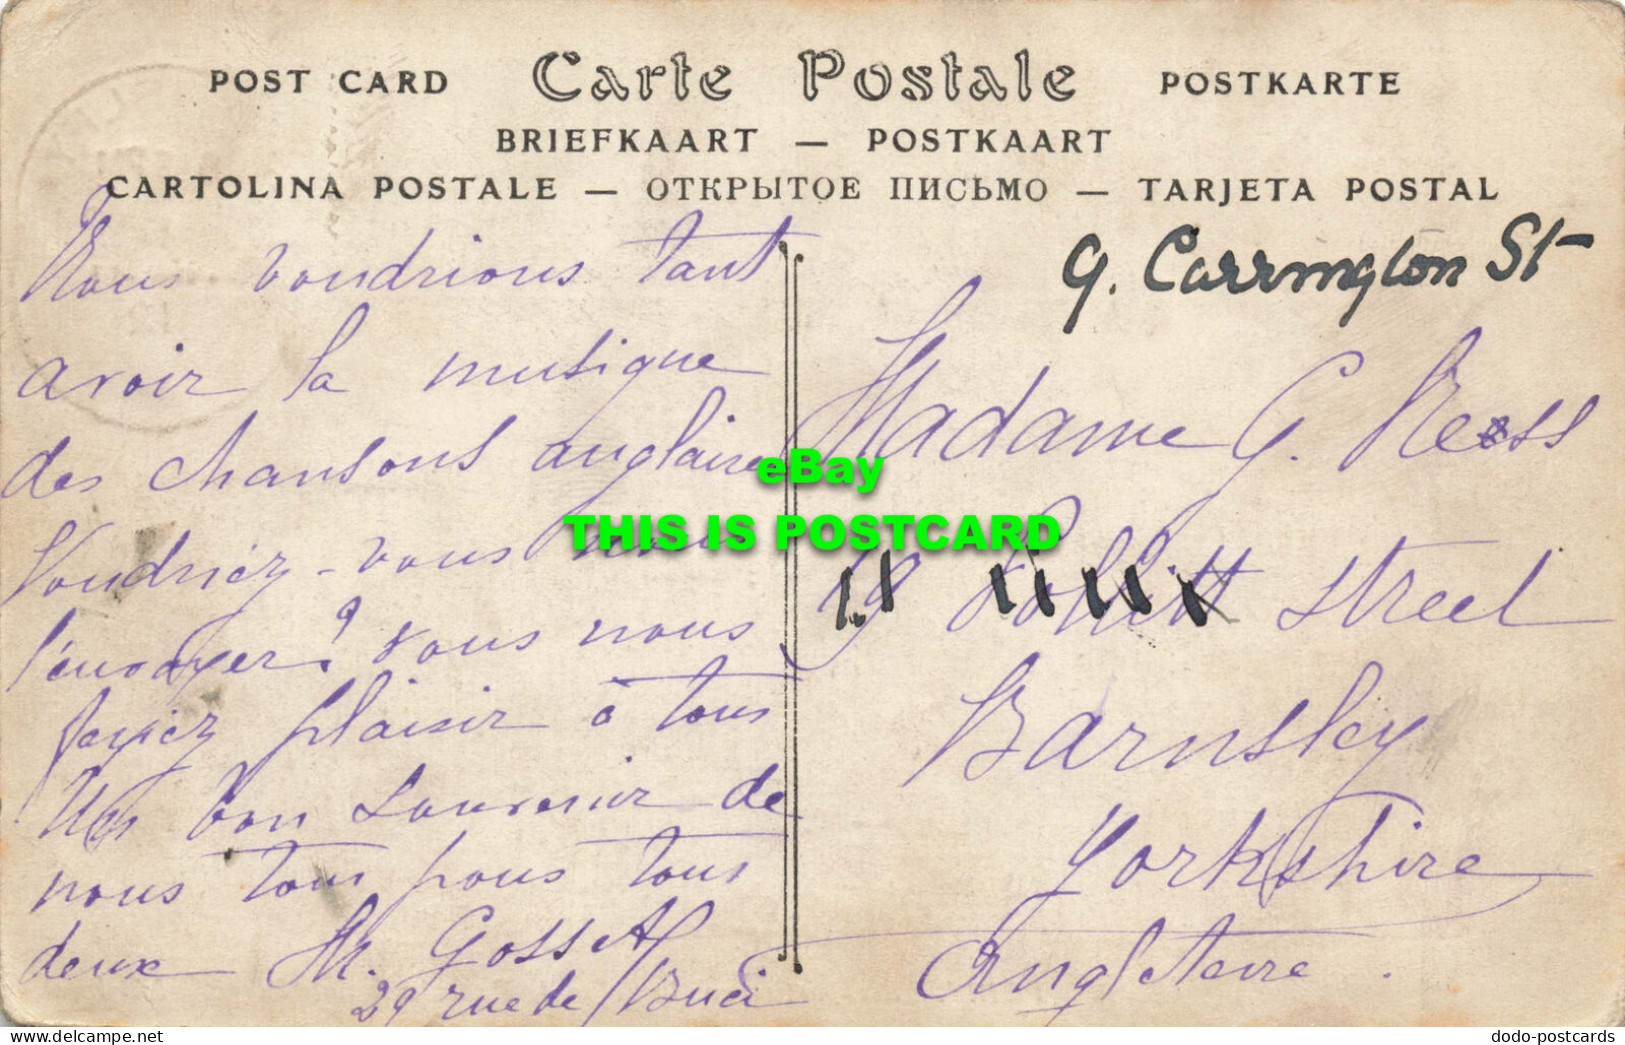 POST CARD Carte Postale POSTKARTE
BRIEFKAART — POSTKAART
CARTOLINA POSTALE — ОТКРЫТОЕ ПИСЬМО — TARJETA POSTAL
Nous voudrions tant
avoir la musique
des chansons anglaises
Voudriez-vous nous
l'envoyer? vous nous
feriez plaisir à tous
Un bon souvenir de
nous tous pour tous
deux M. Gosset
29 rue de Buci
9. Carrington St
Madame G. Ross
19 Street
Barnsley
Yorkshire
Angleterre.
eBay
THIS IS POSTCARD
Delcampe.net
dodo-postcards